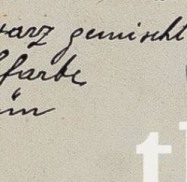 warz gemischt
farbe
ün
th